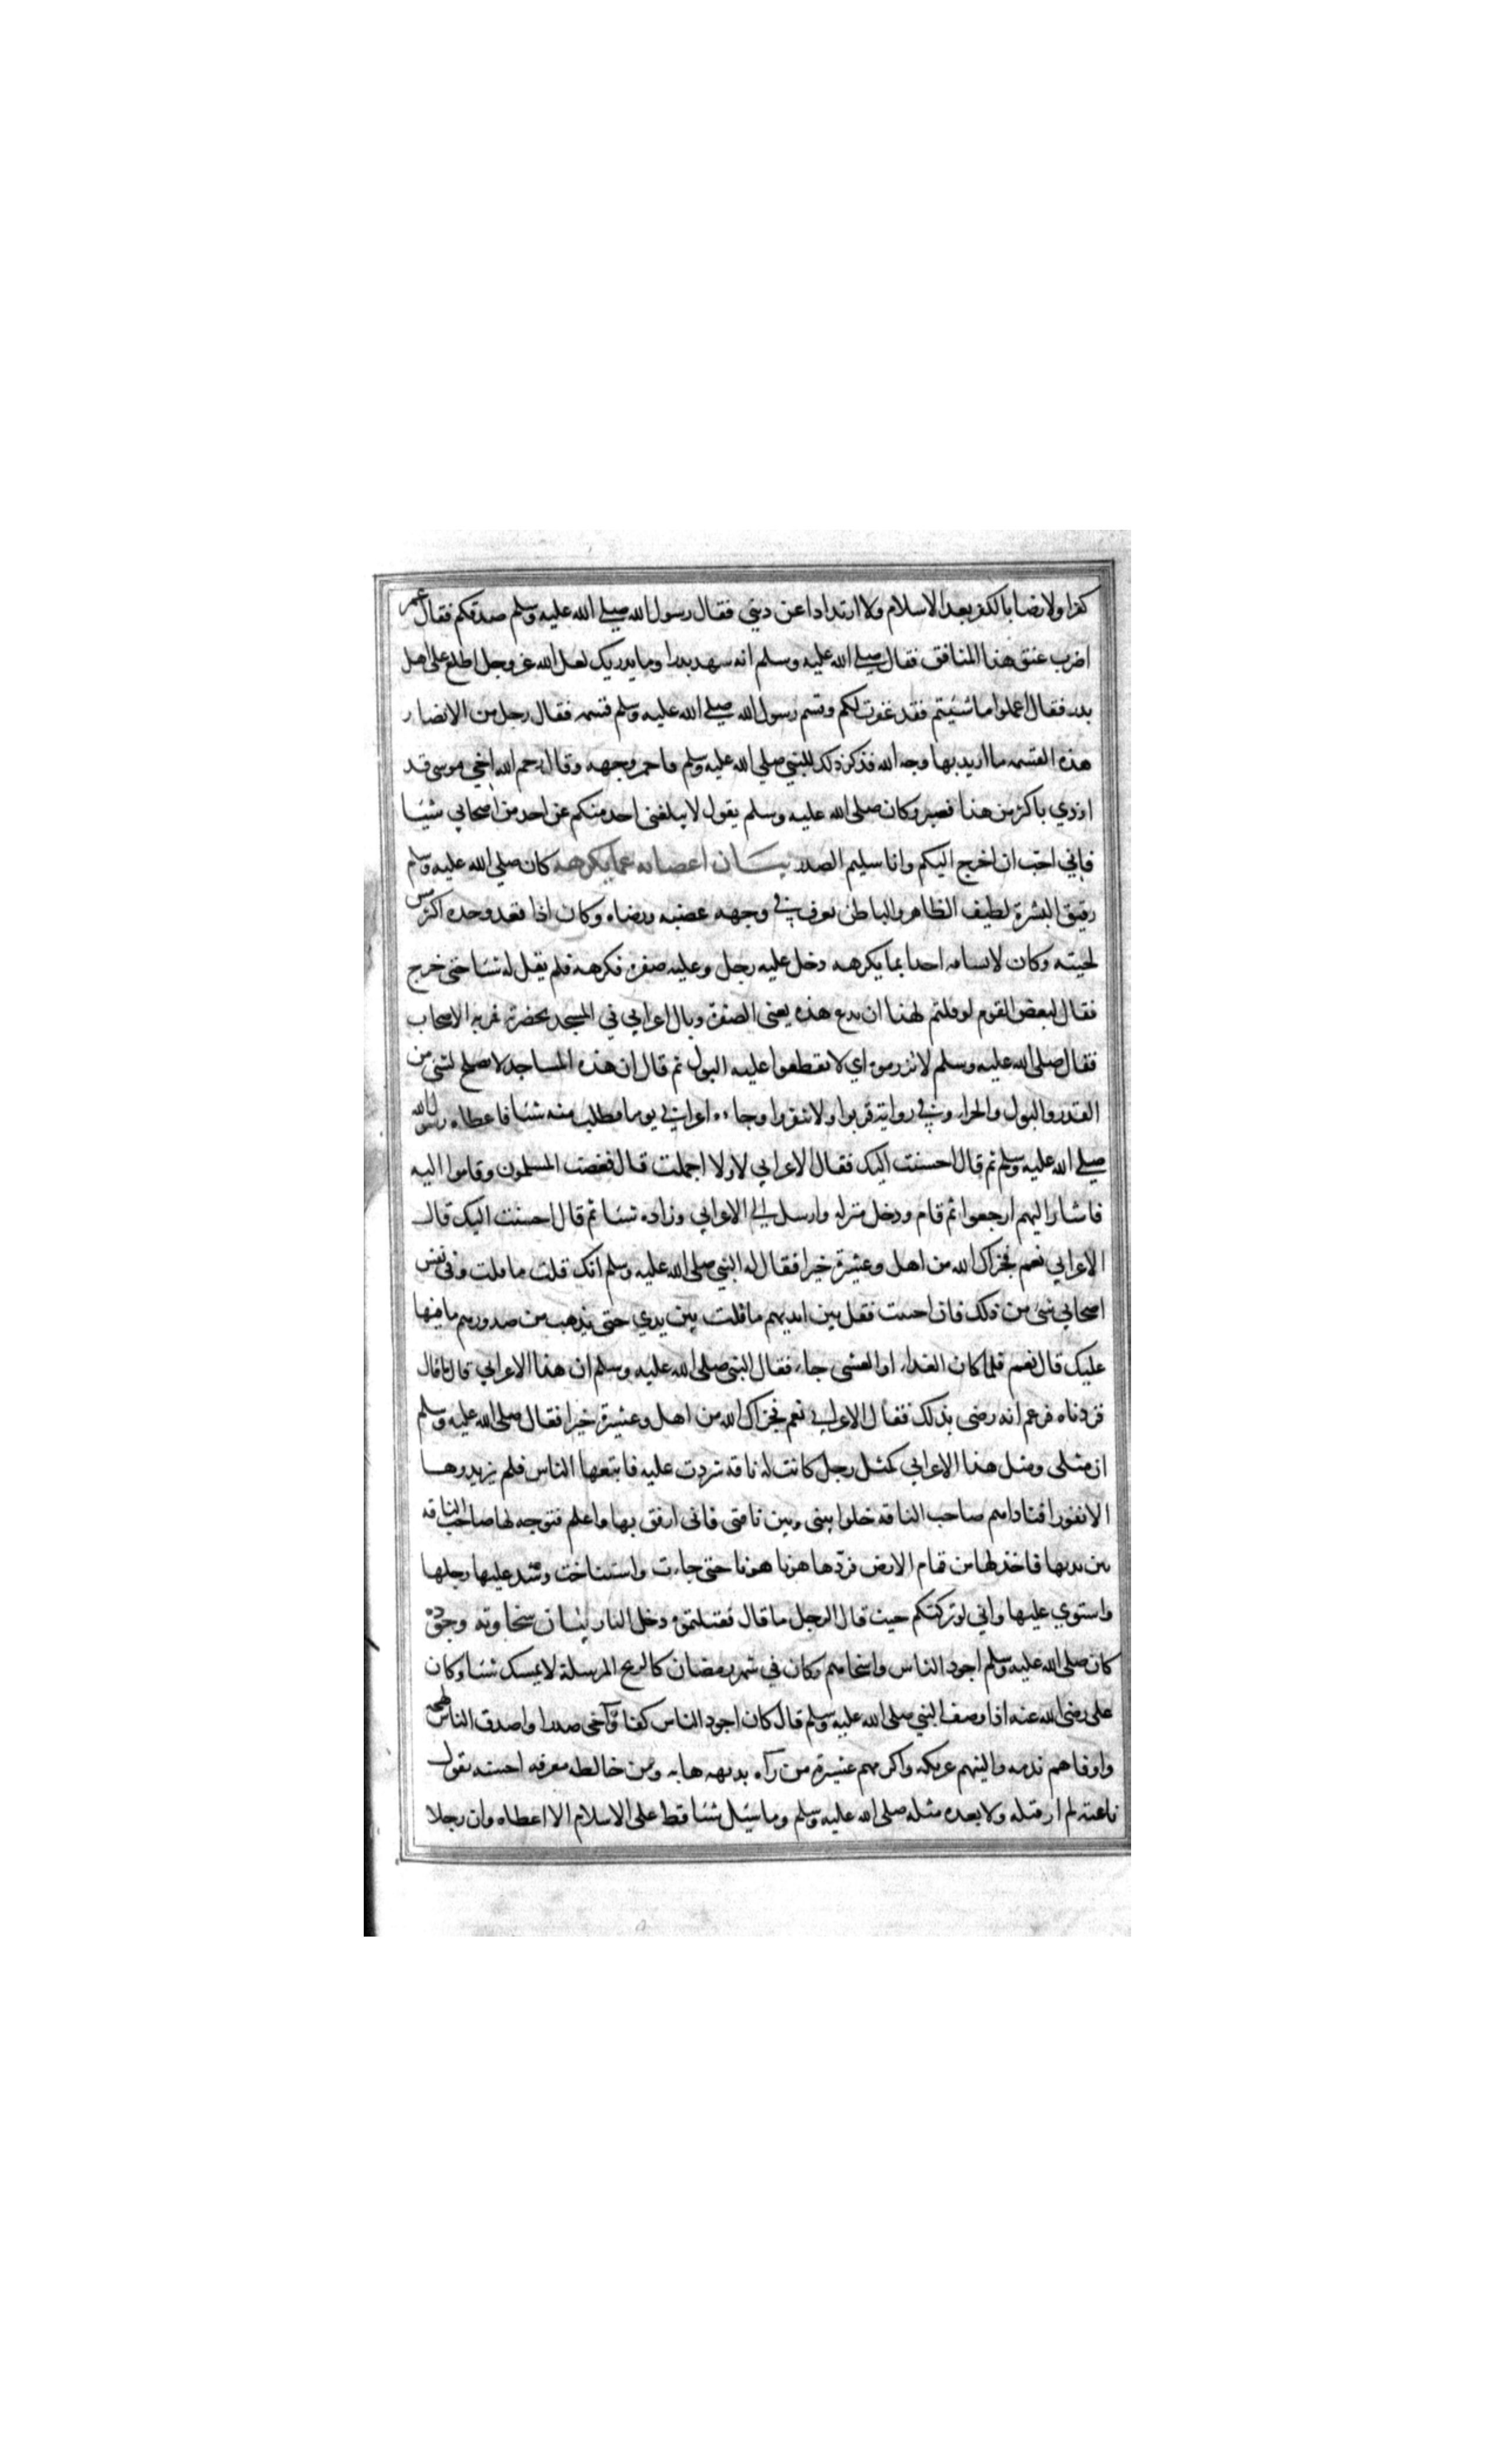 كفرا ولا رضا بالكفر بعد الاسلام ولا ارتدادا عن ديني فقال رسول الله صلى الله عليه وسلم صدقكم فقال عمر
اضرب عنق هذا المنافق فقال صلى الله عليه وسلم انه شهد بدرا وما يدريك لعل الله عز وجل اطلع على اهل
بدر فقال اعملوا ما شئتم فقد غفرت لكم وقسم رسول الله صلى الله عليه وسلم قسمه فقال رجل من الانصار
هذه القسمه ما اريد بها وجه الله فذكر ذلك للنبي صلى الله عليه وسلم فاحمر وجهه وقال رحم الله اخي موسى قد
اوذي باكثر من هذا فصبر وكان صلى الله عليه وسلم يقول لا يبلغني احد منكم عن احد من اصحابي شيئا
فاني احب ان اخرج اليكم وانا سليم الصدر بيان اغضائه عما يكرهه كان صلى الله عليه وسلم
رقيق البشرة لطيف الظاهر والباطن يعرف في وجهه غضبه ورضاه وكان اذا قعد وحده اكثر مس
لحيته وكان لا يشافه احدا بما يكرهه دخل عليه رجل وعليه صفرة فكرهه فلم يقل له شيئا حتى خرج
فقال لبعض القوم لو قلتم لهذا ان يدع هذه يعني الصفرة وبال اعرابي في المسجد بحضرته فهم به الاصحاب
فقال صلى الله عليه وسلم لا تزرموه اي لا تقطعوا عليه البول ثم قال ان هذه المساجد لا تصلح لشئ من
القذر والبول والخراء وفي رواية قربوا ولا تنفروا وجاءه اعرابي يوما فطلب منه شيئا فاعطاه رسول الله
صلى الله عليه وسلم ثم قال احسنت اليك فقال الاعرابي لا ولا اجملت قال فغضب المسلمون وقاموا اليه
فاشار اليهم ارجعوا ثم قام ودخل منزله وارسل الى الاعرابي وزاده شيئا ثم قال احسنت اليك قال
الاعرابي نعم فجزاك الله من اهل وعشيرة خيرا فقال له النبي صلى الله عليه وسلم انك قلت ما قلت وفي نفس
اصحابي شئ من ذلك فان احببت فقل بين ايديهم ما قلت بين يدي حتى يذهب من صدورهم ما فيها
عليك قال نعم فلما كان الغداء او العشي جاء فقال النبي صلى الله عليه وسلم ان هذا الاعرابي قال ما قال
فزدناه فزعم انه رضي بذلك فقال الاعرابي نعم فجزاك الله من اهل وعشيرة خيرا فقال صلى الله عليه وسلم
ان مثلي ومثل هذا الاعرابي كمثل رجل كانت له ناقة شردت عليه فاتبعها الناس فلم يزيدوها
الا نفورا فناداهم صاحب الناقه خلوا بيني وبين ناقتي فاني ارفق بها واعلم فتوجه لها صاحب الناقه
بين يديها فاخذ لها من قمام الارض فردها هونا هونا حتى جاءت واستناخت وشد عليها رحلها
واستوي عليها واني لو تركتكم حيث قال الرجل ما قال فقتلتموه دخل النار بيان سخاوته وجوده
كان صلى الله عليه وسلم اجود الناس واسخاهم وكان في شهر رمضان كالريح المرسلة لا يمسك شيئا وكان
على رضى الله عنه اذا وصف النبي صلى الله عليه وسلم قال كان اجود الناس كفا واسخى صدرا واصدق الناس لهجه
واوفاهم ذمه والينهم عريكه واكرمهم عشيرة من رآه بديهه هابه ومن خالطه معرفه احبه يقول
ناعته لم ار قبله ولا بعده مثله صلى الله عليه وسلم وما سئل شيئا قط على الاسلام الا اعطاه وان رجلا